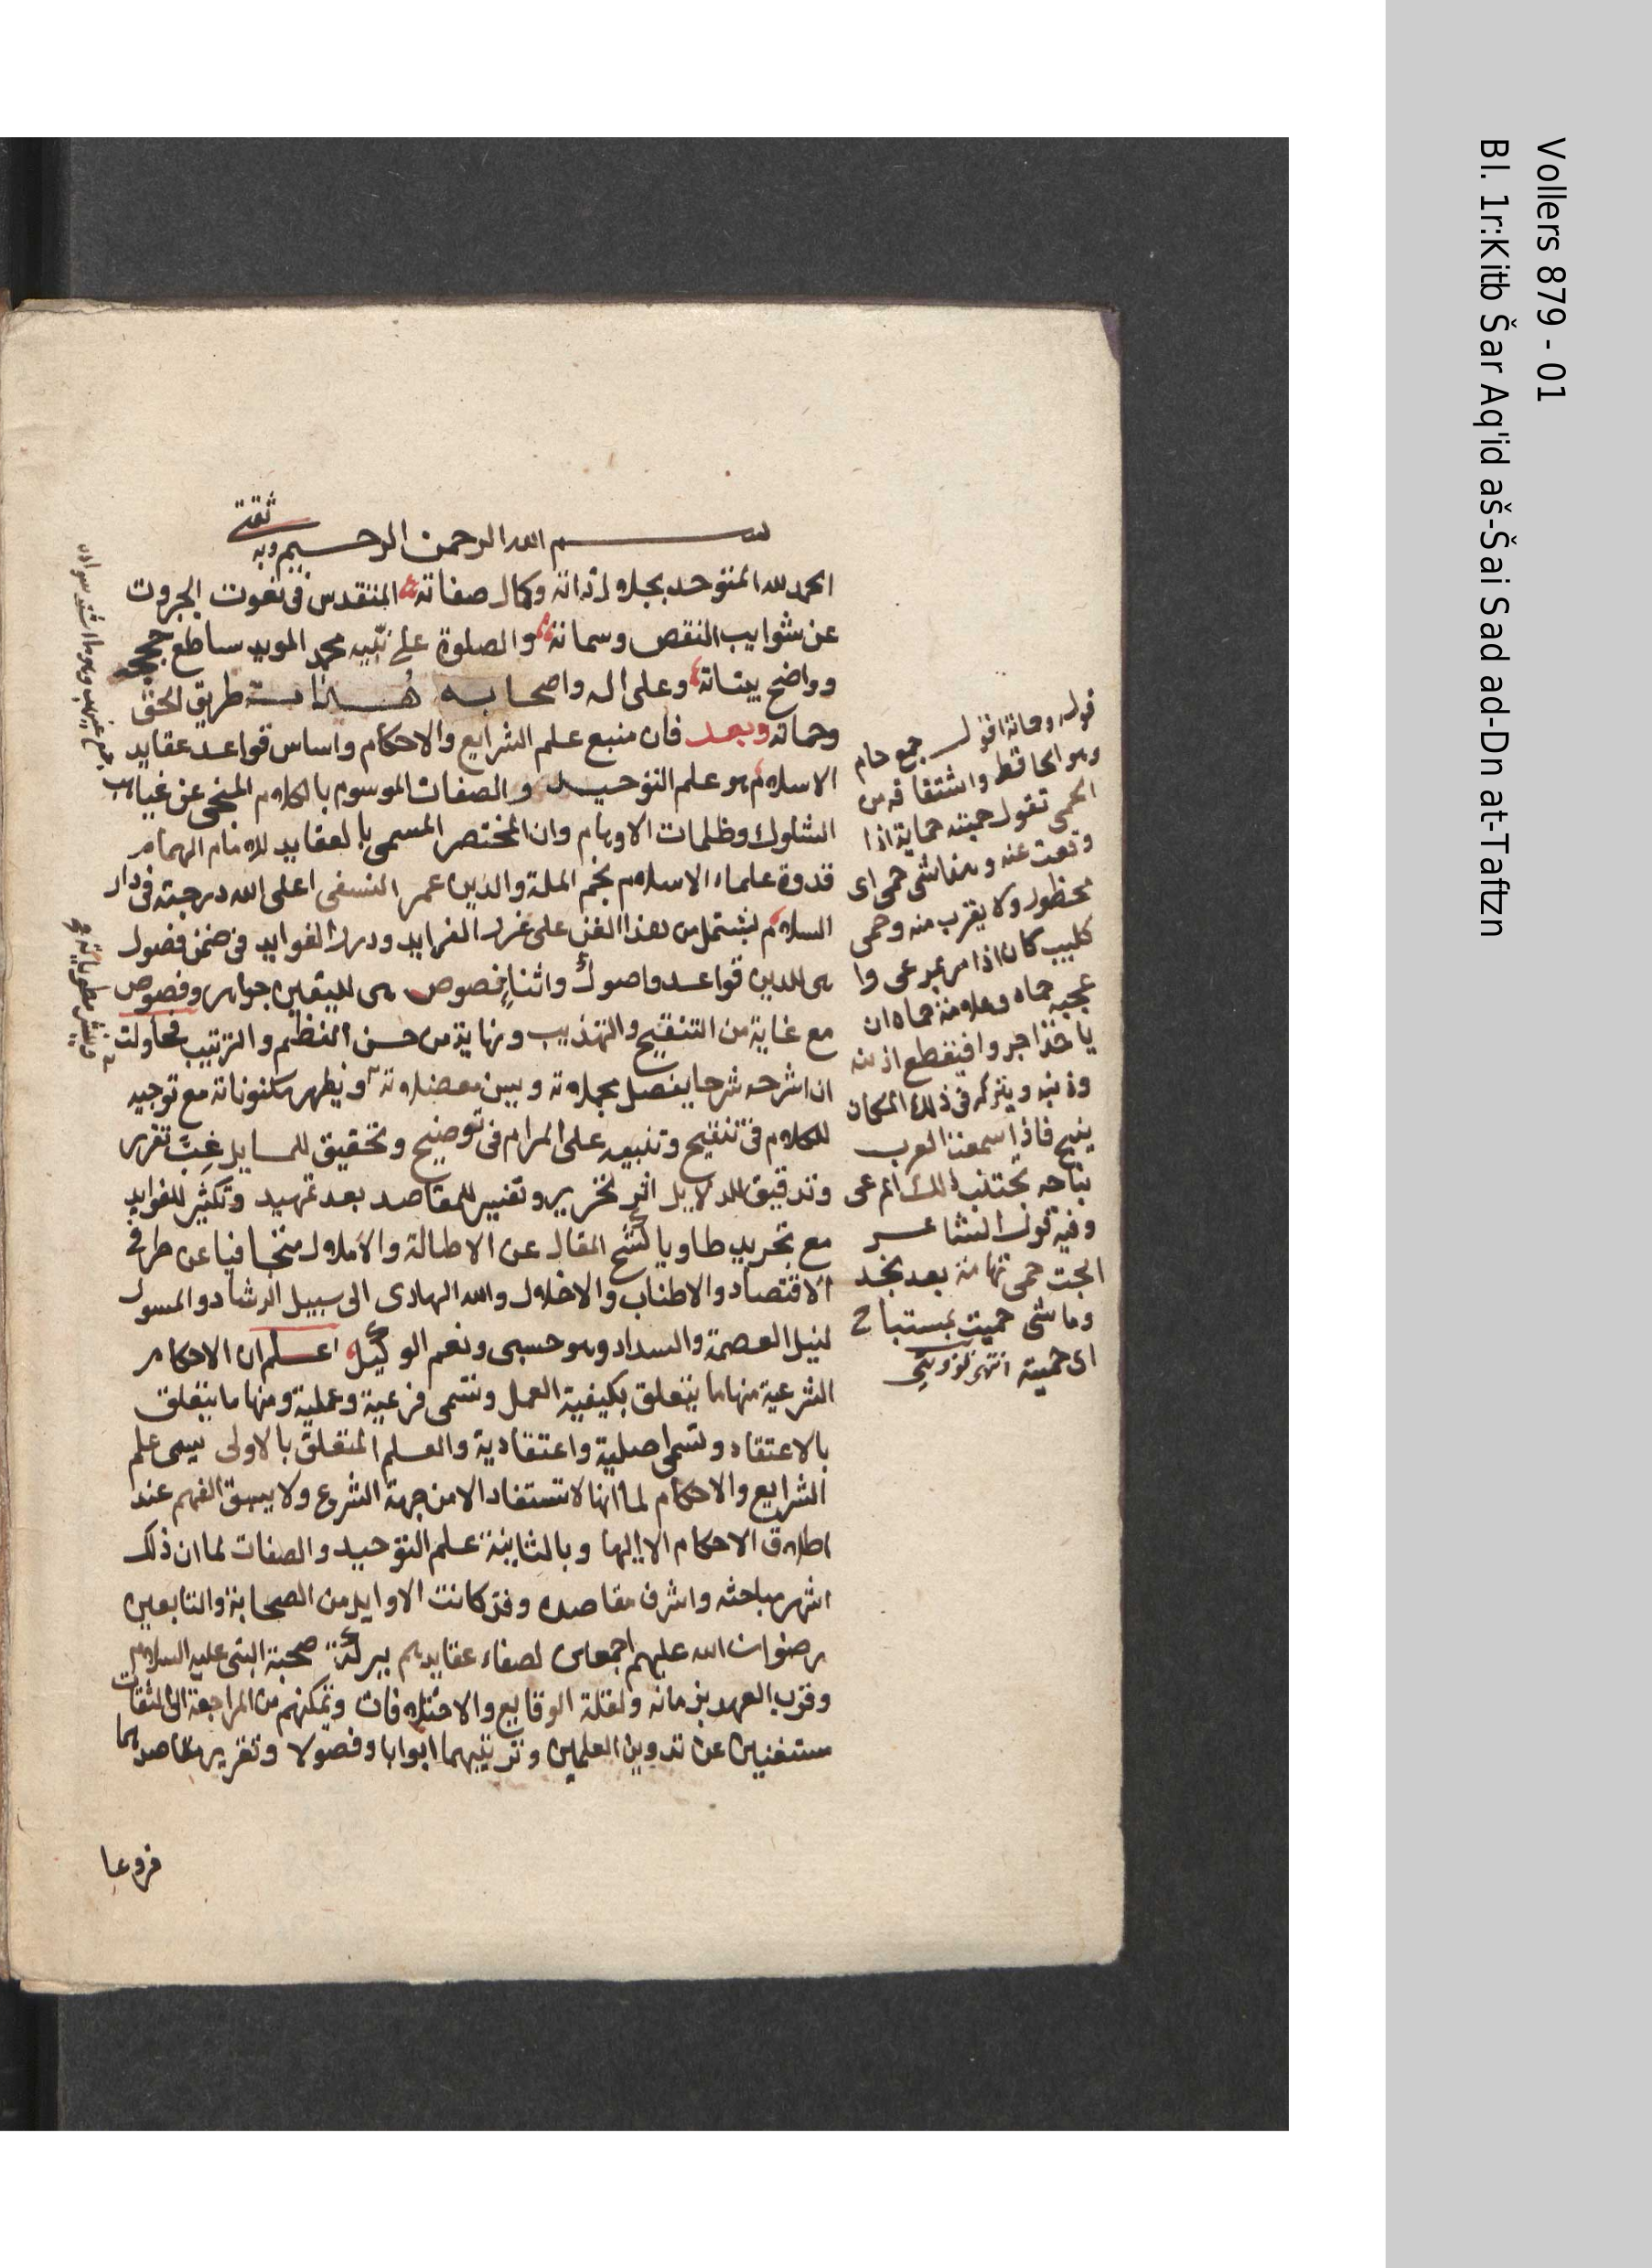 بسم الله الرحمن الرحيم وبه
ثقتي
الحمد لله المتوحد بجلال ذاته وكمال صفاته المتقدس في نعوت الجبروت
عن شوايب النقص وسماته والصلوة على نبيه محمد المويد بساطع حججه
وواضح بيناته وعلى اله واصحابه هداة طريق الحق
وحماته وبعد فان منبع علم الشرايع والاحكام واساس قواعد عقايد
الاسلام هو علم التوحيد والصفات الموسوم بالكلام المنجى عن غياهب
الشكوك وظلمات الاوهام وان المختصر المسمى بالعقايد للامام الهمام
قدوة علماء الاسلام نجم الملة والدين عمر النسفى اعلى الله درجته في دار
السلام يشتمل من هذا الفن على غرر الفرايد ودرر الفوايد في ضمن فصول
هى للدين قواعد واصول واثناء نصوص هى لليقين جواهر وفصوص
مع غاية من التنقيح والتهذيب ونهاية من حسن النظم والترتيب فحاولت
ان اشرحه شرحا يفصل مجملاته ويبين معضلاته ويظهر مكنوناته مع توجيه
للكلام في تنقيح وتنبيه على المرام في توضيح وتحقيق للمسايل غب تقرير
وتدقيق للدلايل اثر تحرير وتفسير للمقاصد بعد تمهيد وتكثير للفوايد
مع تجريد طاويا كشح المقال عن الاطالة والاملال متجافيا عن طرفى
الاقتصاد والاطناب والاخلال والله الهادى الى سبيل الرشاد والمسول
لنيل العصمة والسداد وهو حسبى ونعم الوكيل اعلم ان الاحكام
الشرعية منها ما يتعلق بكيفية العمل وتسمى فرعية وعملية ومنها ما يتعلق
بالاعتقاد وتسمى اصلية واعتقادية والعلم المتعلق بالاولى يسمى علم
الشرايع والاحكام لما انها لا تستفاد الا من جهة الشرع ولا يسبق الفهم عند
اطلاق الاحكام الا اليها وبالثانية علم التوحيد والصفات لما ان ذلك
اشهر مباحثه واشرف مقاصده وقد كانت الاوايل من الصحابة والتابعين
رضوان الله عليهم اجمعين لصفاء عقايدهم ببركة صحبة النبى عليه السلام
وقرب العهد بزمانه ولقلة الوقايع والاختلافات وتمكنهم من المراجعة الى الثقات
مستغنين عن تدوين العلمين وترتيبهما ابوابا وفصولا وتقرير مقاصدهما
فروعا
قوله وحماته اقول جمع حام
وهو الحافظ واشتقاقه من
الحمى تقول حميته حماية اذا
دفعت عنه وهذا شى حمى اى
محظور ولا يقرب منه وحمى
كليب كان اذا مر بمرعى وا
عجبه حماه وعلامة حماه ان
ياخذ اجروا فيقطع اذنيه
وذنبه ويتركه في ذلك المكان
ينبح فاذا سمعت العرب
نباحه تجتنب ذلك المرعى
وفيه قول الشاعر
ابحت حمى تهامة بعد نجد
وما شى حميت بمستباح
اى حميته انتهى
جمع غيهب وهو ما اشتد سواده
Vollers 879 - 01
Bl. 1r:Kitb Šar Aq'id aš-Šai Sad ad-Dn at-Taftzn